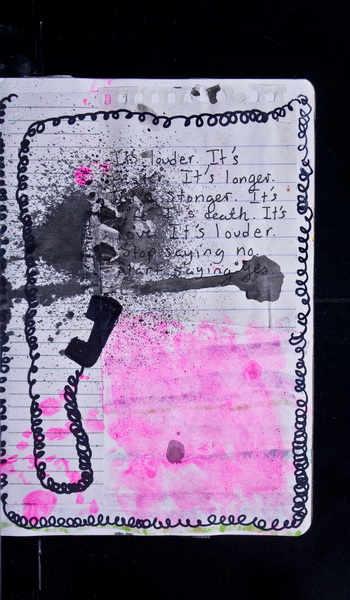 It's louder. It's
It's longer.
It's Stonger. It's
It's death. It's
love. It's louder.
Stop saying no,
start saying yes.